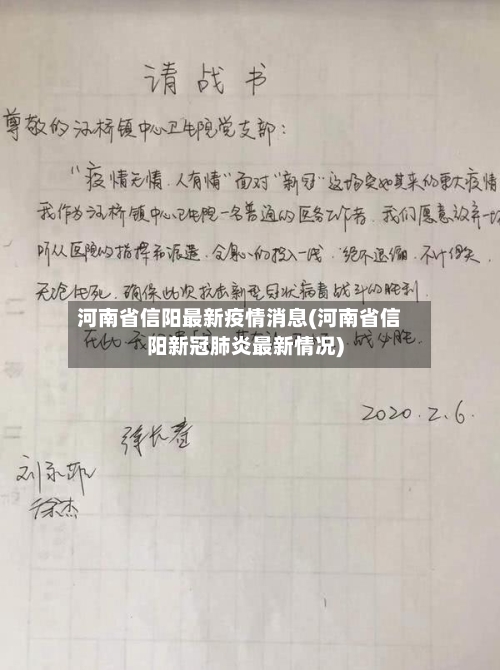 请战书
尊敬的汪桥镇中心卫生院党支部：
“疫情无情，人有情”面对“新冠”这场突如其来的重大疫情
我作为汪桥镇中心卫生院一名普通的医务工作者，我们愿意放弃一切
听从医院的指挥和派遣，全身心的投入一线，绝不退缩，不计得失
无论生死，确保此次抗击新型冠状病毒战斗的胜利
河南省信阳最新疫情消息(河南省信
阳新冠肺炎最新情况)
在此我 战必胜.
2020.2.6.
徐长
刘
徐杰